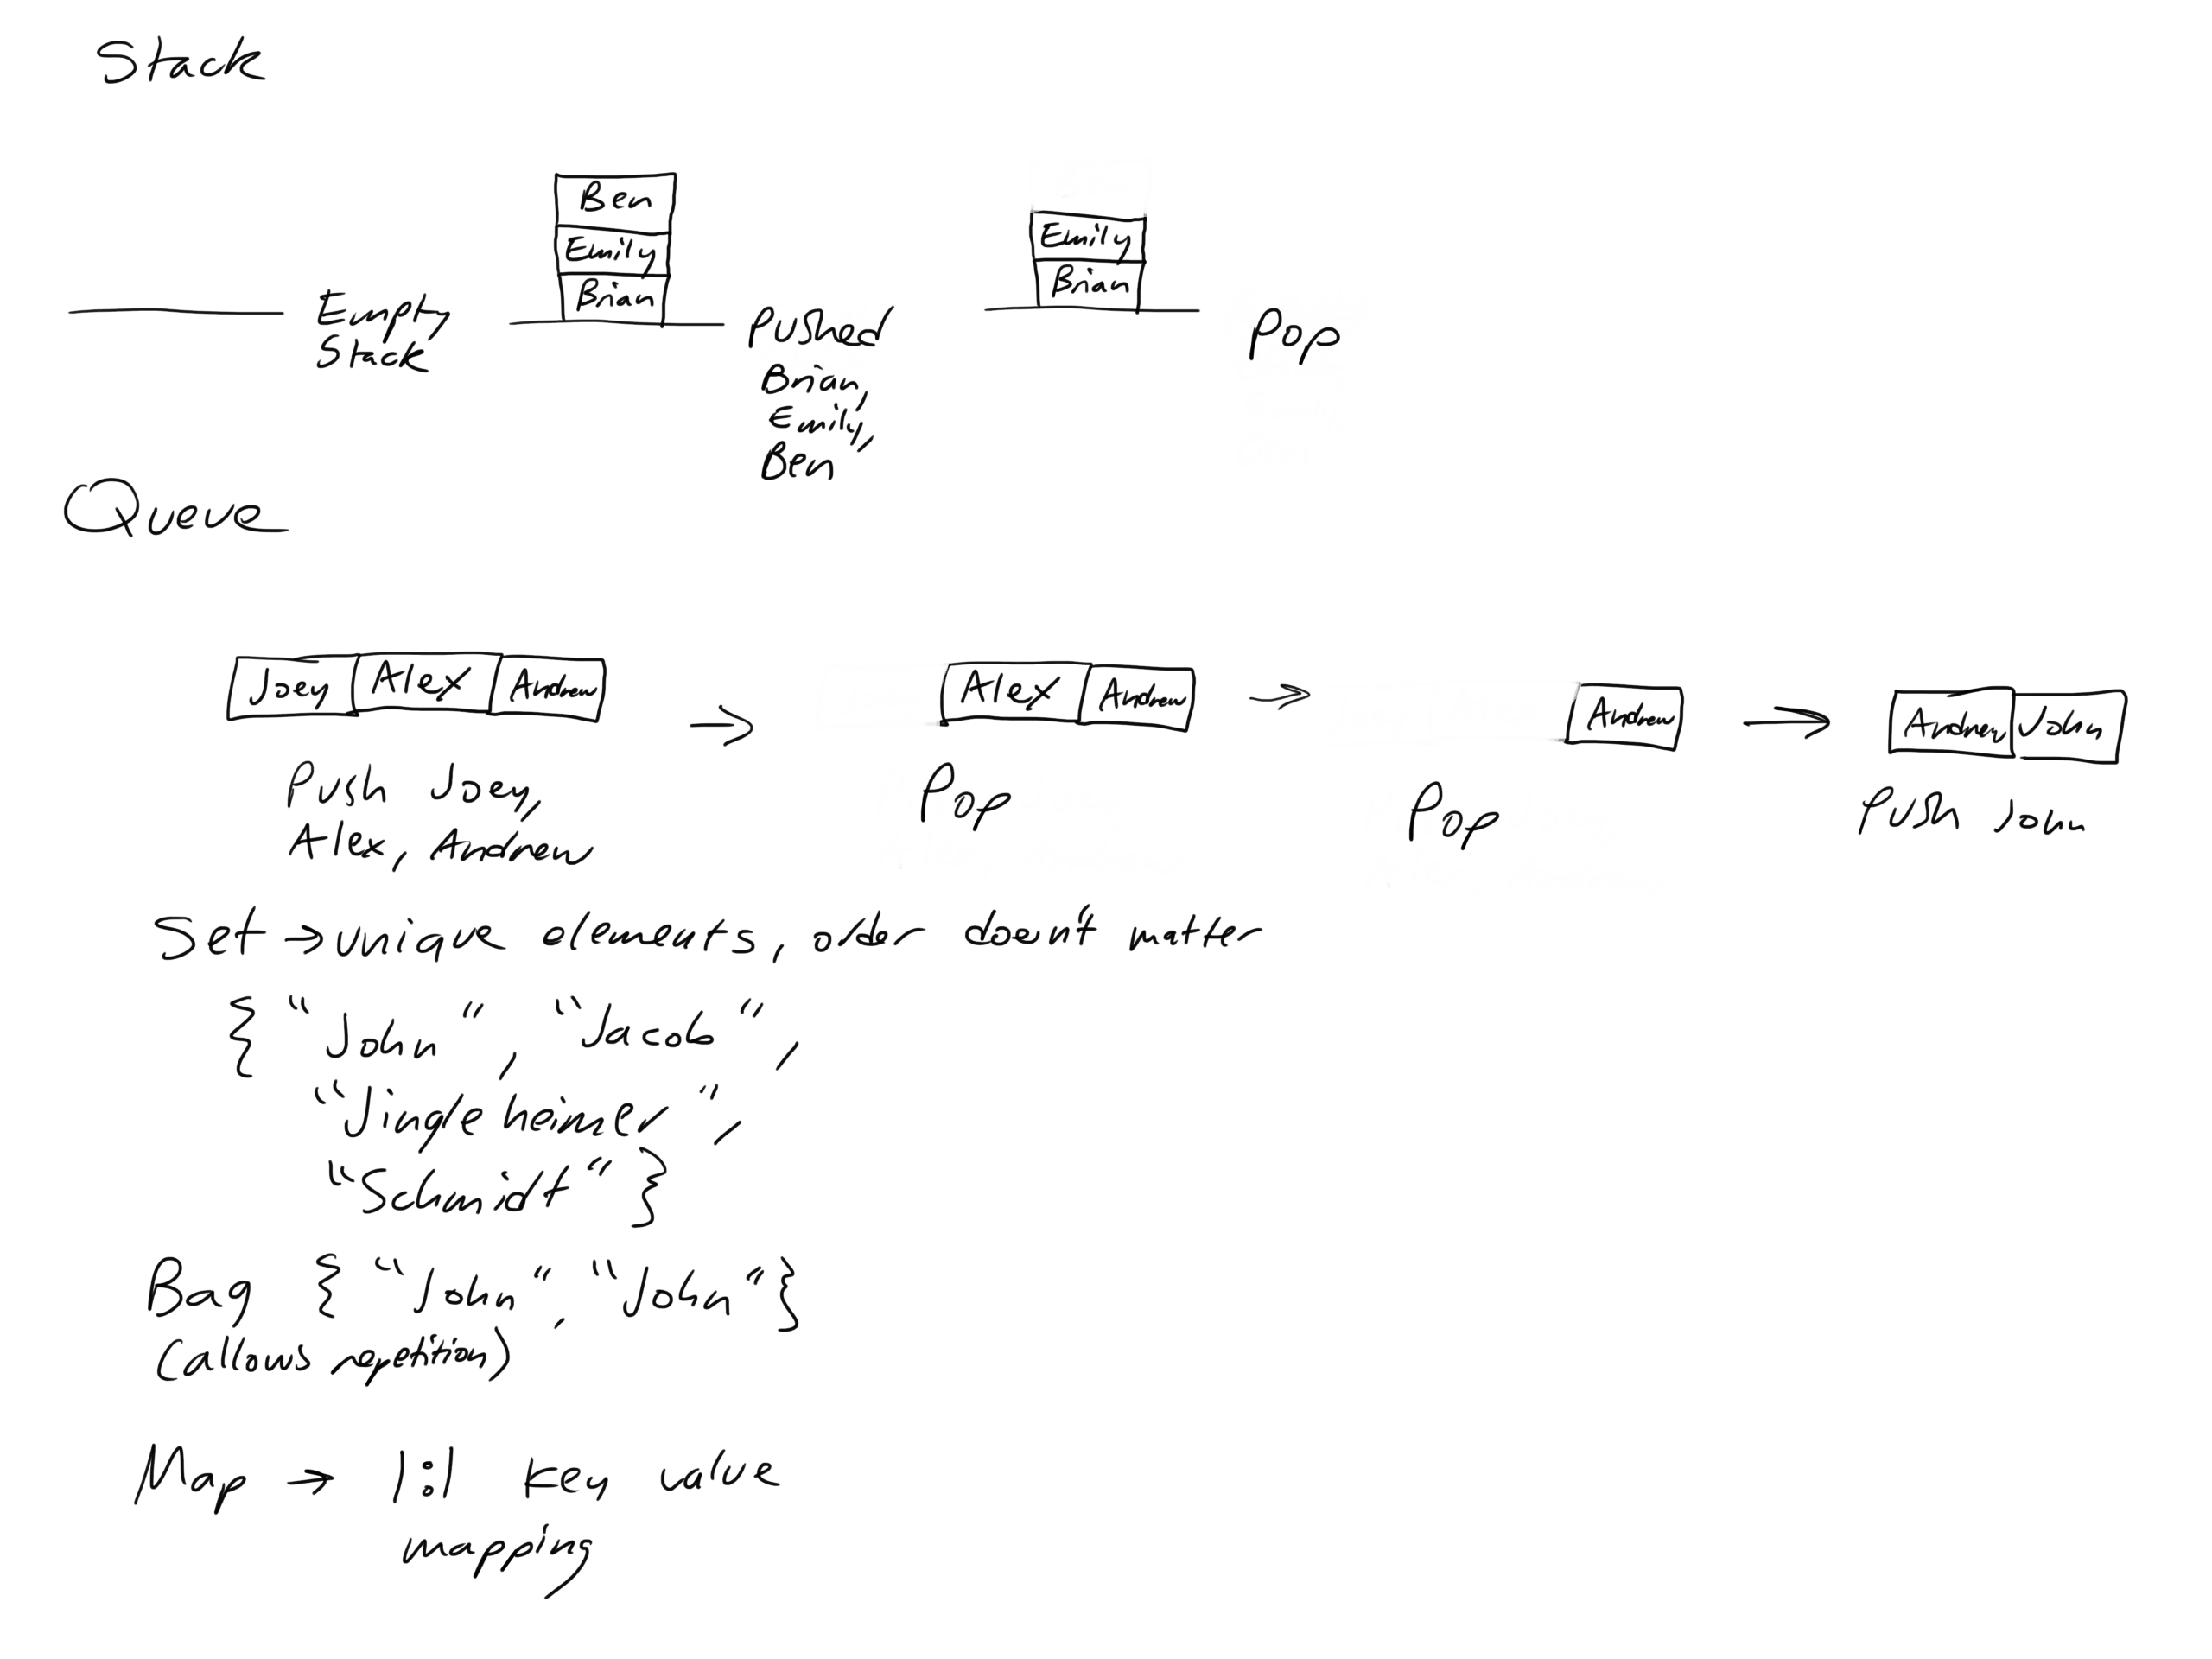 Stack
Ben
Emily
Brian
Emily
Brian
Empty
Stack
Pushed
Brian,
Emily,
Ben
Pop
Queue
Joey Alex Andrew
Alex Andrew
Andrew
Andrew John
Push Joey,
Alex, Andrew
Pop
Pop
Push John
Set → unique elements, order doesn't matter
{ "John", "Jacob",
"Jingleheimer",
"Schmidt" }
Bag { "John", "John" }
(allows repetition)
Map → 1:1 key value
mapping